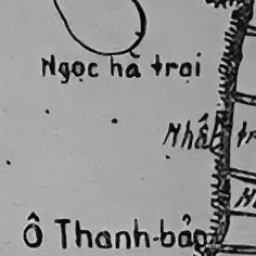 Ngọc hà trại
Nhất
Ô Thanh-bảo